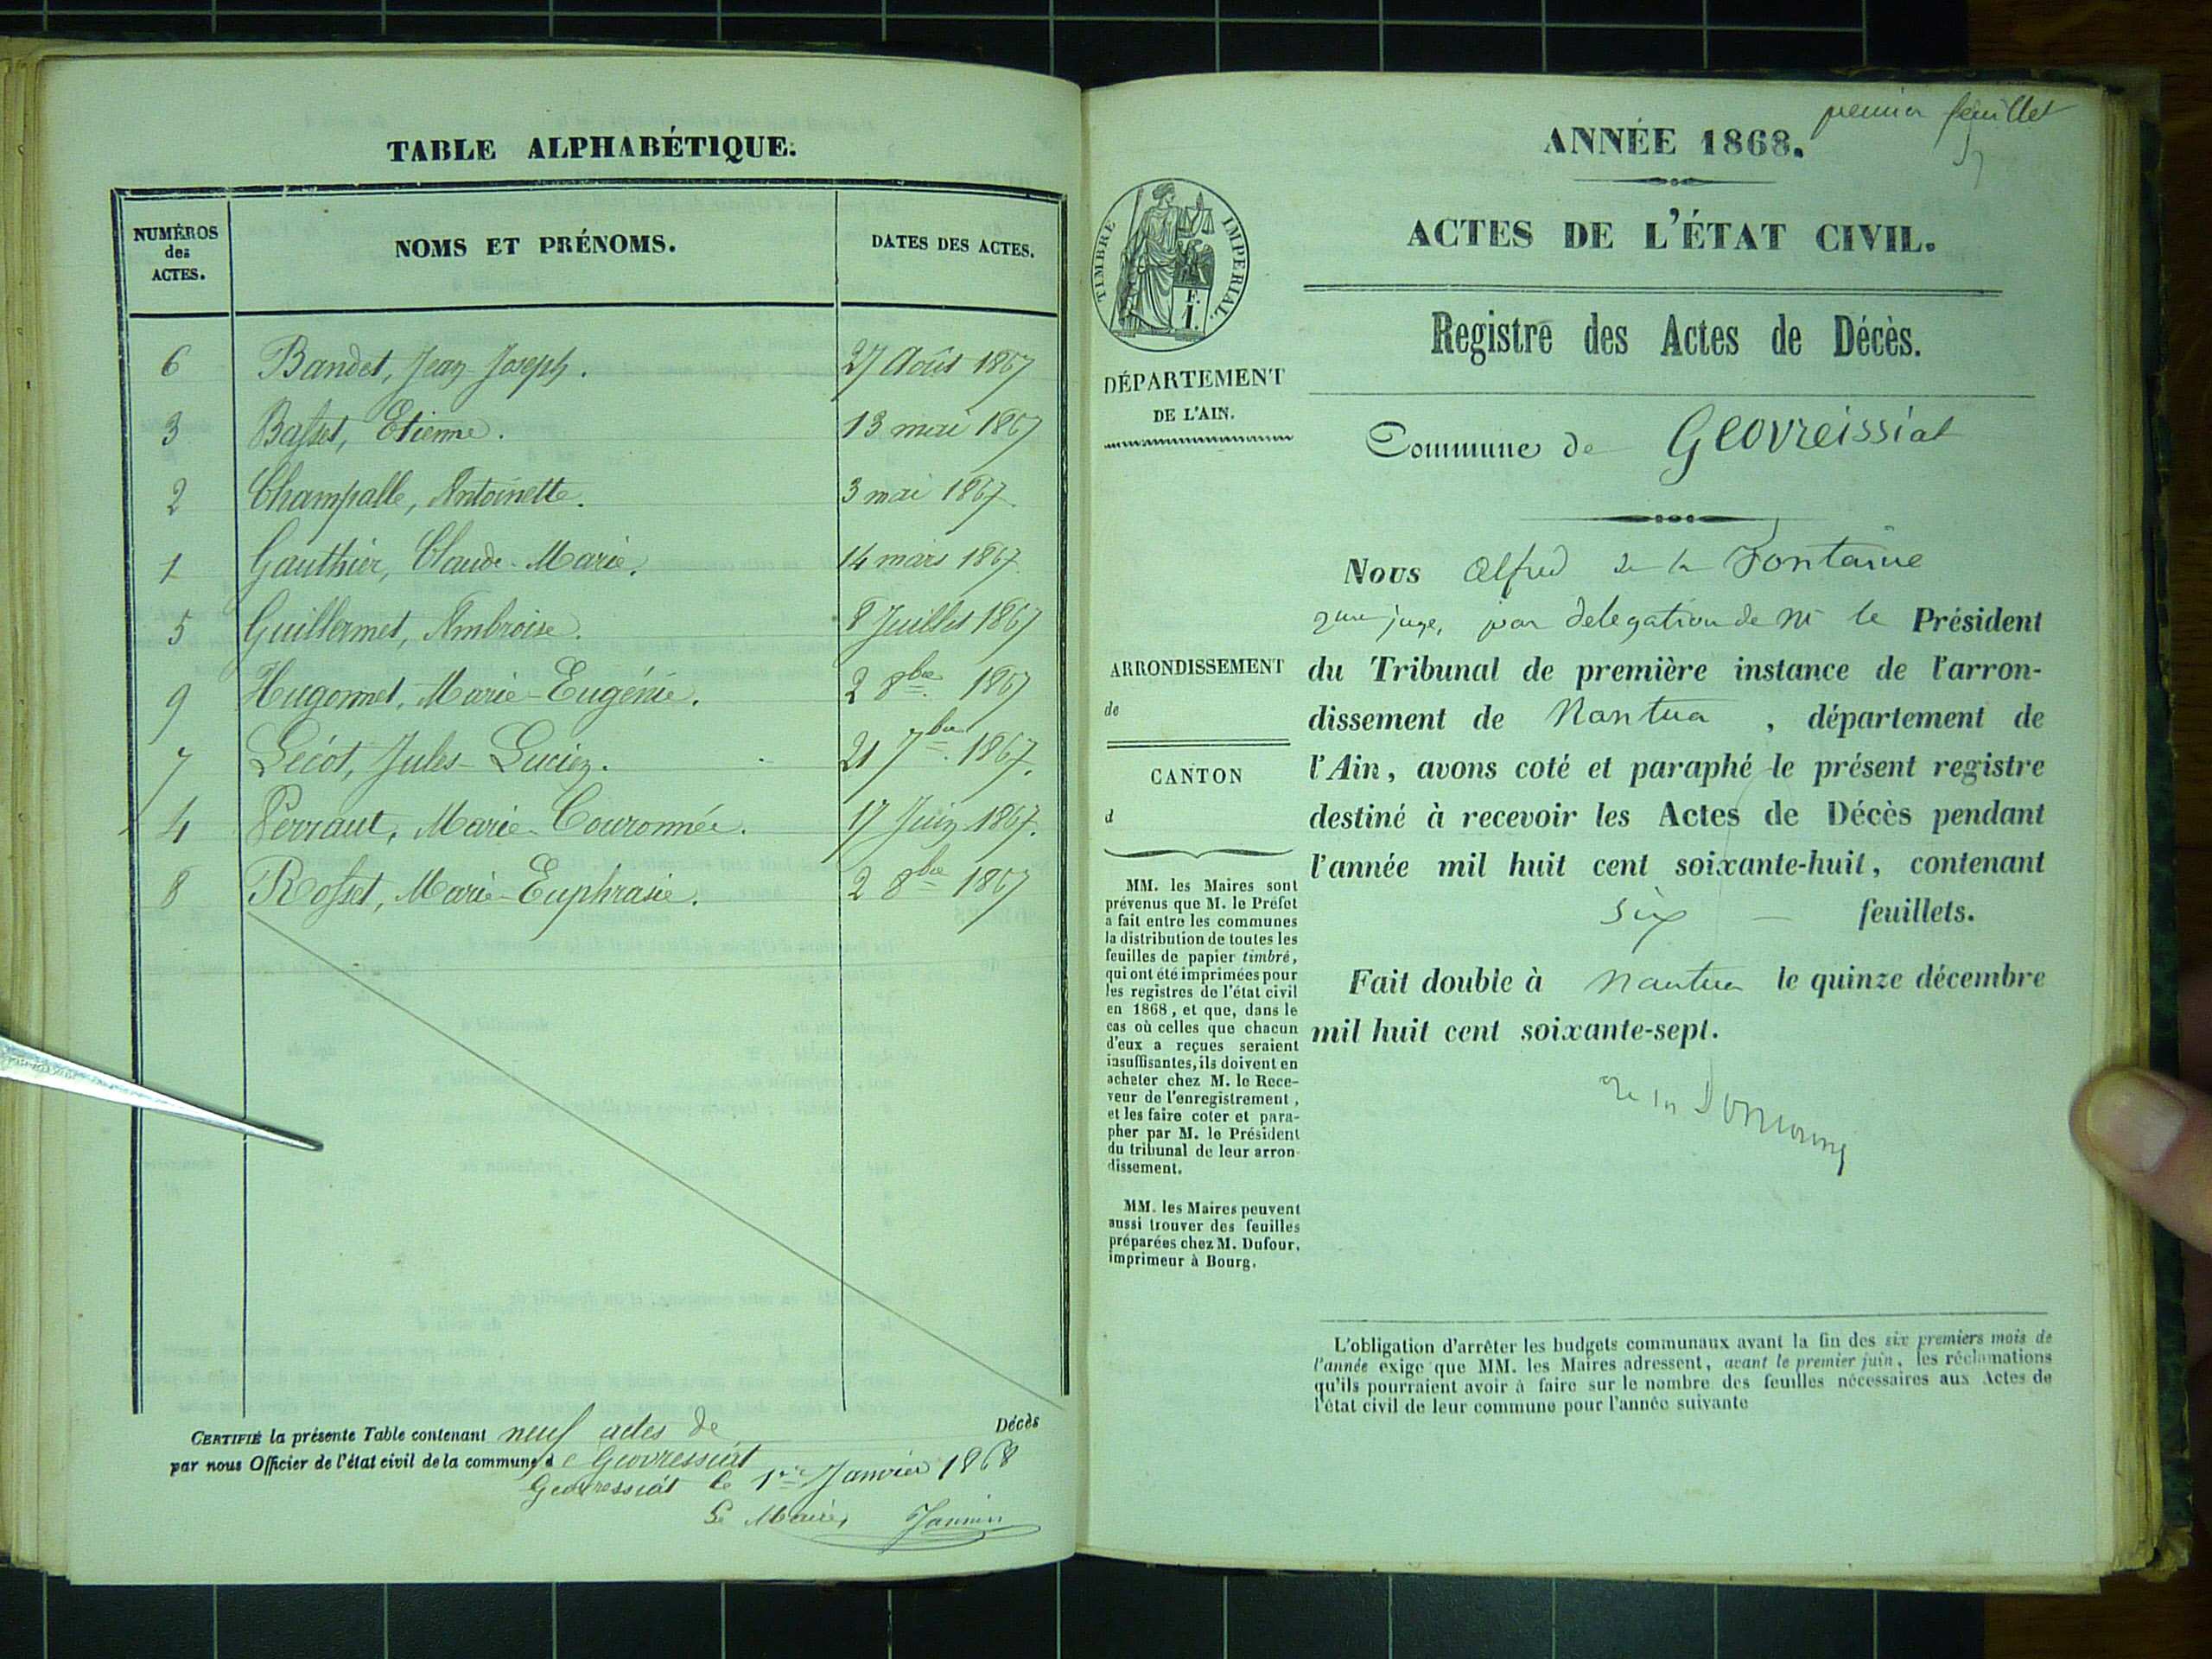 TABLE ALPHABÉTIQUE.
NUMÉROS des ACTES.
NOMS ET PRÉNOMS.
DATES DES ACTES.
6 Bandet, Jean-Joseph. 27 Août 1867
3 Basset, Etienne. 13 mai 1867
2 Champalle, Antoinette. 3 mai 1867.
1 Gauthier, Claude-Marie. 14 mars 1867.
5 Guillermet, Ambroise. 8 Juillet 1867
9 Hugonnet, Marie-Eugénie. 2 8bre 1867
7 Lécot, Jules-Lucien. 21 7bre 1867.
4 Perraut, Marie-Couronnée. 17 Juin 1867.
8 Rosset, Marie-Euphrasie. 2 8bre 1867
CERTIFIÉ la présente Table contenant neuf actes de Décès
par nous Officier de l'état civil de la commune de Geovressiat
Geovressiat le 1er Janvier 1868
Le Maire, Jannin
premier feuillet
ANNÉE 1868.
ACTES DE L'ÉTAT CIVIL.
TIMBRE IMPERIAL.
F.
1.
DÉPARTEMENT
DE L'AIN.
ARRONDISSEMENT
de
CANTON
d
MM. les Maires sont
prévenus que M. le Préfet
a fait entre les communes
la distribution de toutes les
feuilles de papier timbré,
qui ont été imprimées pour
les registres de l'état civil
en 1868, et que, dans le
cas où celles que chacun
d'eux a reçues seraient
insuffisantes, ils doivent en
acheter chez M. le Rece-
veur de l'enregistrement,
et les faire coter et para-
pher par M. le Président
du tribunal de leur arron-
dissement.
MM. les Maires peuvent
aussi trouver des feuilles
préparées chez M. Dufour,
imprimeur à Bourg.
Registre des Actes de Décès.
Commune de Geovreissiat
Nous Alfred de la Fontaine
juge, par delegation de Mr le Président
du Tribunal de première instance de l'arron-
dissement de Nantua, département de
l'Ain, avons coté et paraphé le présent registre
destiné à recevoir les Actes de Décès pendant
l'année mil huit cent soixante-huit, contenant
six feuillets.
Fait double à Nantua le quinze décembre
mil huit cent soixante-sept.
L'obligation d'arrêter les budgets communaux avant la fin des six premiers mois de
l'année exige que MM. les Maires adressent, avant le premier juin, les réclamations
qu'ils pourraient avoir à faire sur le nombre des feuilles nécessaires aux Actes de
l'état civil de leur commune pour l'année suivante